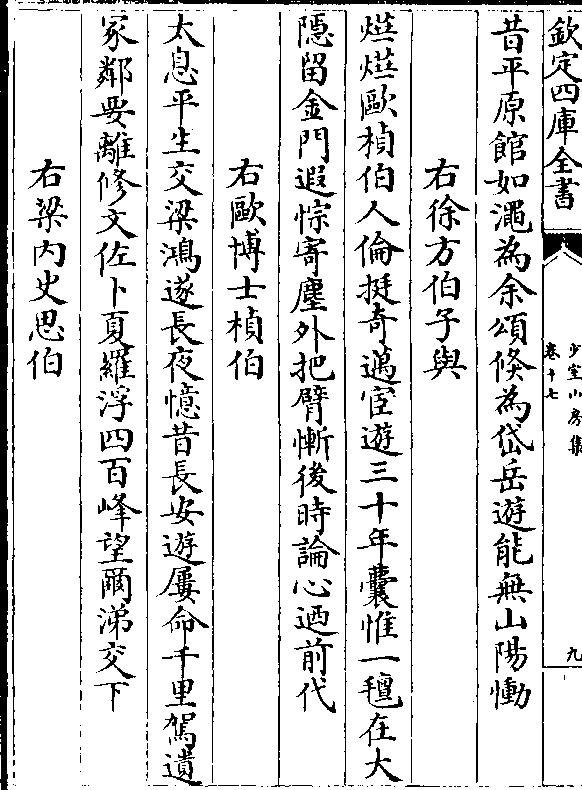 欽定四庫全書
少室山房集
卷十七
九
昔平原館如澠為余頌倏為岱岳遊能無山陽慟
右徐方伯子與
爀爀歐楨伯人倫挺奇邁宦遊三十年囊惟一氊在大
隠留金門遐悰寄塵外把臂慚後時論心迺前代
右歐博士楨伯
太息平生交梁鴻遂長夜憶昔長安遊屢命千里駕遺
冢鄰要離修文佐卜夏羅浮四百峰望爾涕交下
右梁内史思伯